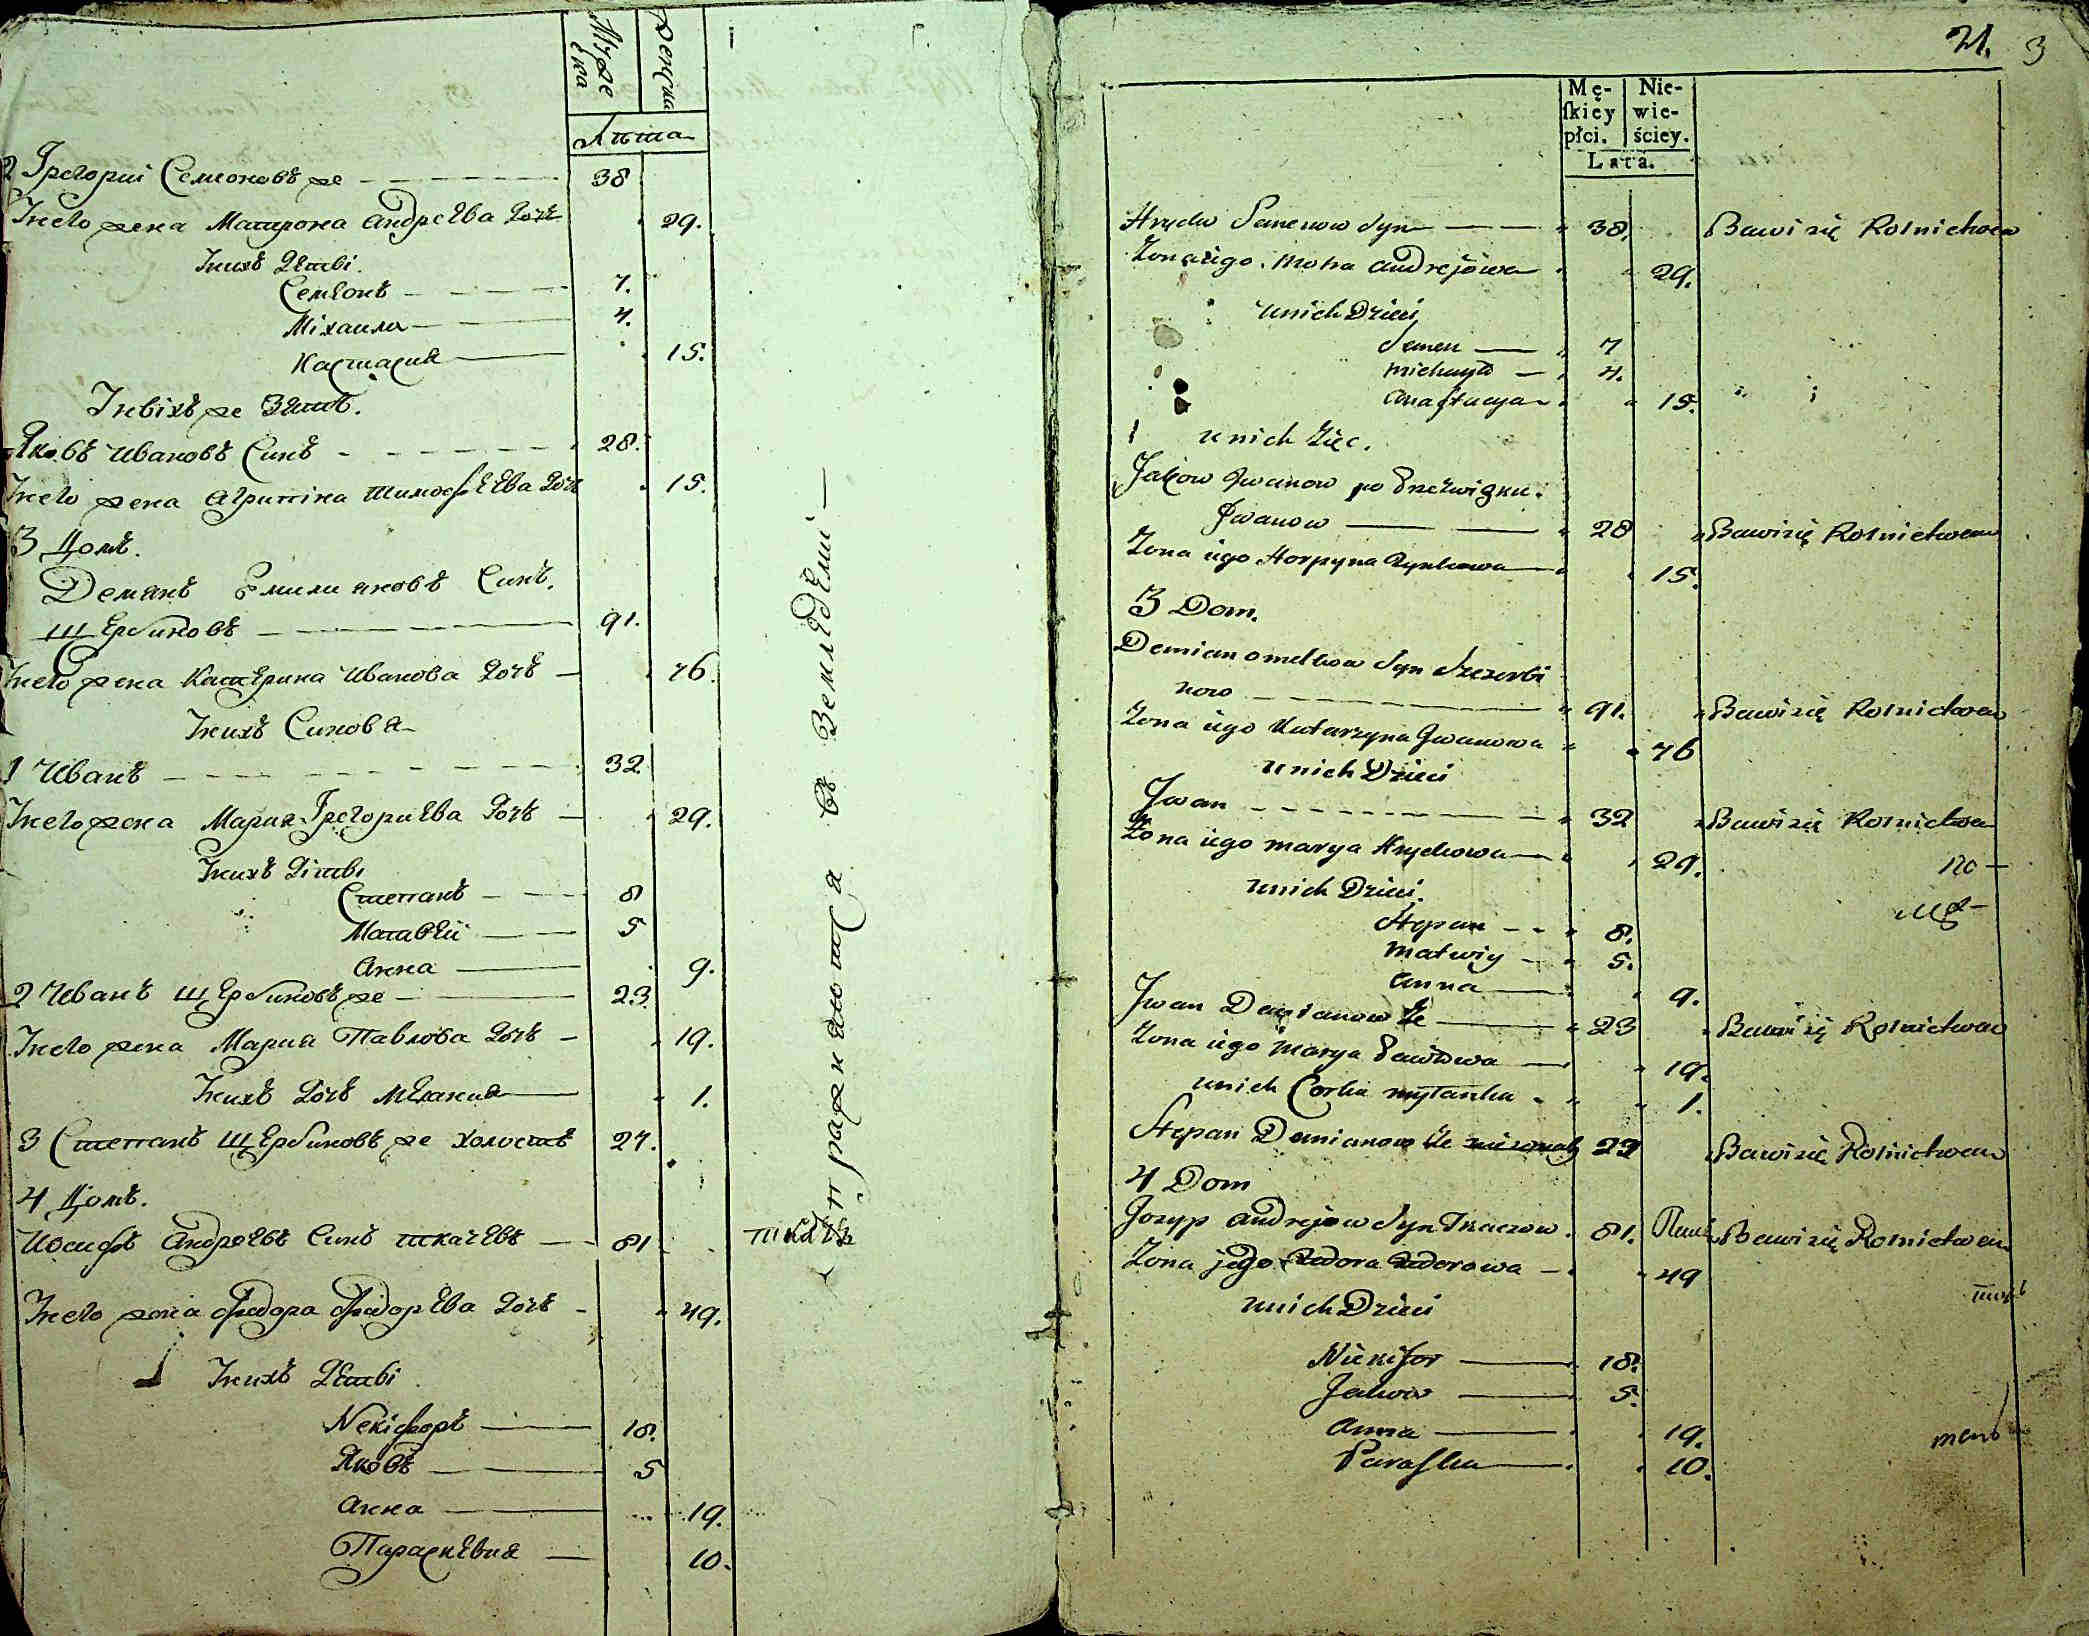 Муже
ска
Женска
Лѣта
2 Грегорій Семеновъ же 38
У него жена Матрона Андреева дочь 29.
У нихъ дѣти
Семенъ 7.
Міхаила 4.
Настасия 15.
У нихъ же зять.
Яковъ Ивановъ синъ 28.
У него жена Агрипина Тимофеева дочь 15.
3 Домъ.
Демянъ Емилияновъ синъ.
Щербиновъ 91.
У него жена Катерина Иванова дочь 76.
У нихъ синовя
1 Иванъ 32
У него жена Мария Грегориева дочь 29.
У нихъ дѣти
Степанъ 8
Матвей 5
Анна 9.
2 Иванъ Щербиновъ же 23.
У него жена Мария Павлова дочь 19.
У нихъ дочь Мелания 1.
3 Степанъ Щербиновъ же холостъ 27.
4 Домъ.
Иосифъ Андреевъ синъ Ткачевъ 81
У него жена Федора Федорева дочь 49.
У нихъ дѣти
Некіфоръ 18.
Яковъ 5
Анна 19.
Параскевия 10.
упражняются въ земледелиі
21. 3
Mę- Nie-
ſkiey wie-
płci. ściey.
Lata.
Hryćko Semenow Syn 38. Bawi się Rolnictwem
Żona iego Motra Andrejowa 29.
u nich Dzieci
Semen 7
Michayło 4.
Anastazya 15.
u nich Zięc.
Jakow Iwanow po Przezwisku.
Iwanow 28 Bawi się Rolnictwem
Żona iego Horpyna 15.
3 Dom.
Demian Omelkow Syn Szczerbi
now 91. Bawi się Rolnictwem
Żona iego Katarzyna Iwanowa 76
u nich Dzieci
Iwan 32 Bawi się Rolnictwem
Żona iego Marya Hryckowa 29. по-
u nich Dzieci.
Stepan 8.
Matwiy 5.
Anna 9.
Iwan Demianow że 23 Bawi się Rolnictwem
Żona iego Marya Pawłowa 19.
u nich Corka Myłanka 1.
Stepan Demianow że nieżonaty 27 Bawi się Rolnictwem
4 Dom
Jozyp Andrejow Syn Tkaczow. 81. Bawi się Rolnictwem
Żona jego Fedora Fedorowa 49
u nich Dzieci
Nickifor 18.
Jakow 5.
Anna 19.
Paraſka 10.